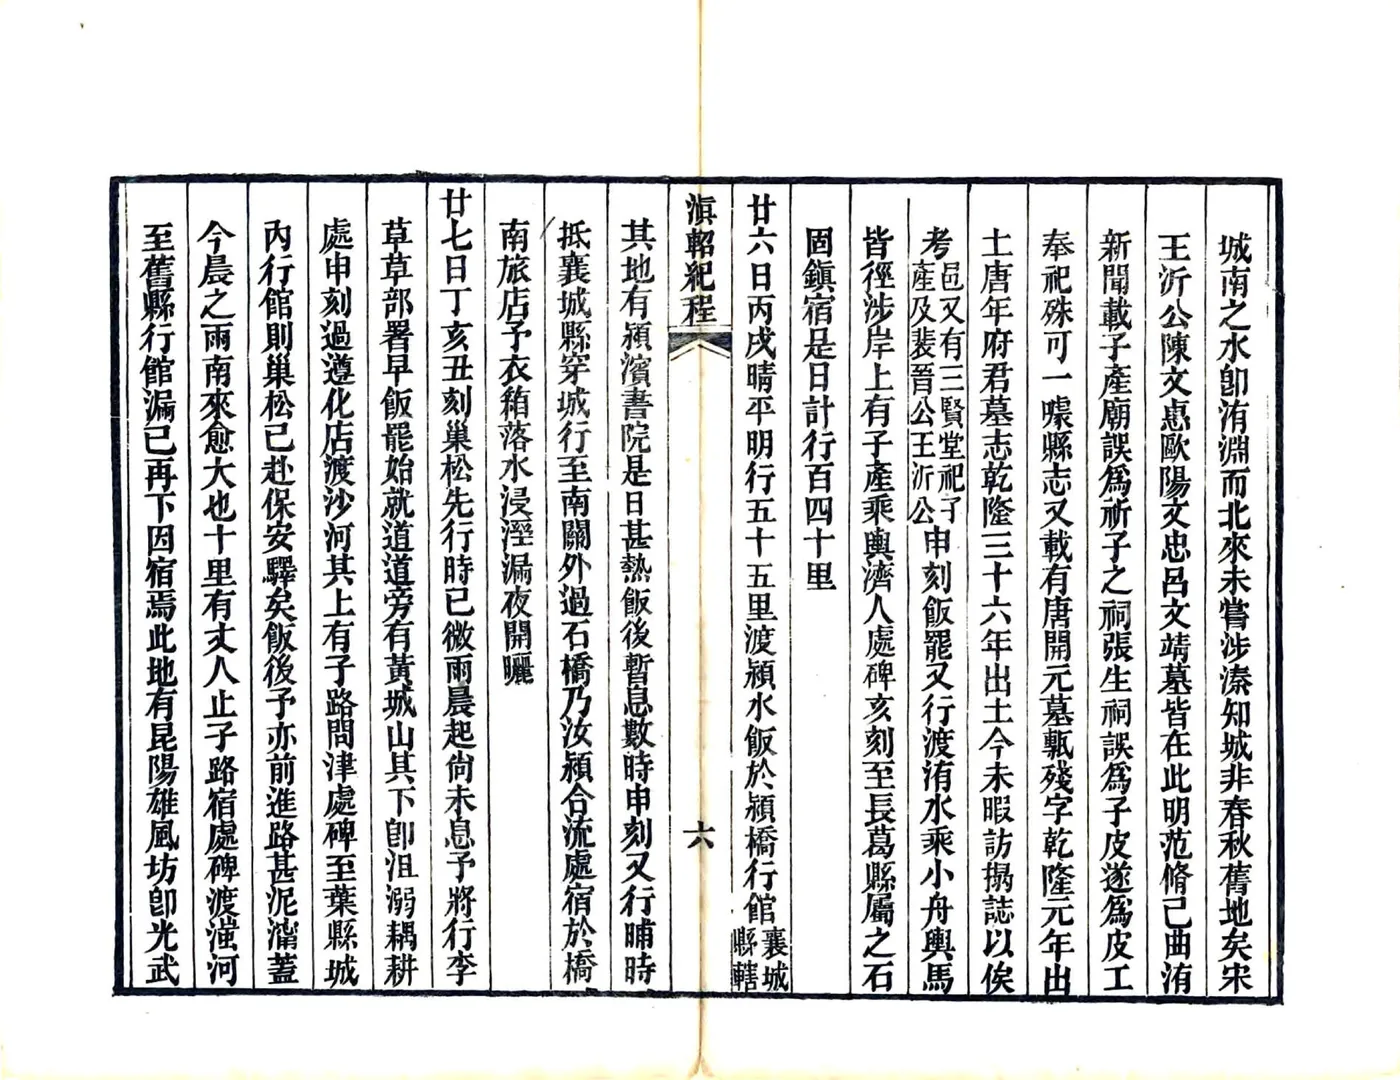 城南之水卽洧淵而北來未嘗涉溱知城非春秋舊地矣宋
王沂公陳文惠歐陽文忠呂文靖墓皆在此明范脩己曲洧
新聞載子產廟誤爲祈子之祠張生祠誤爲子皮遂爲皮工
奉祀殊可一噱縣志又載有唐開元墓甎殘字乾隆元年出
土唐年府君墓志乾隆三十六年出土今未暇訪搨誌以俟
考邑又有三賢堂祀子產及裴晉公王沂公申刻飯罷又行渡洧水乘小舟輿馬
皆徑涉岸上有子產乘輿濟人處碑亥刻至長葛縣屬之石
固鎮宿是日計行百四十里
廿六日丙戌晴平明行五十五里渡潁水飯於潁橋行館襄城縣轄
滇軺紀程
六
其地有潁濱書院是日甚熱飯後暫息數時申刻又行晡時
抵襄城縣穿城行至南關外過石橋乃汝潁合流處宿於橋
南旅店予衣箱落水浸溼漏夜開曬
廿七日丁亥丑刻巢松先行時已微雨晨起尙未息予將行李
草草部署早飯罷始就道道旁有黃城山其下卽沮溺耦耕
處申刻過遵化店渡沙河其上有子路問津處碑至葉縣城
內行館則巢松已赴保安驛矣飯後予亦前進路甚泥濘蓋
今晨之雨南來愈大也十里有丈人止子路宿處碑渡滍河
至舊縣行館漏已再下因宿焉此地有昆陽雄風坊卽光武